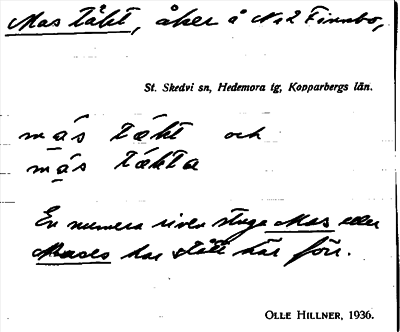 Mas täkt, åker å No 2 Finnbo,
St. Skedvi sn, Hedemora tg, Kopparbergs län.
mạ́s tä́kt och
mạ́s tä́kta
En numera riven stuga Mas eller
Mases har stått här förr.
OLLE HILLNER, 1936.